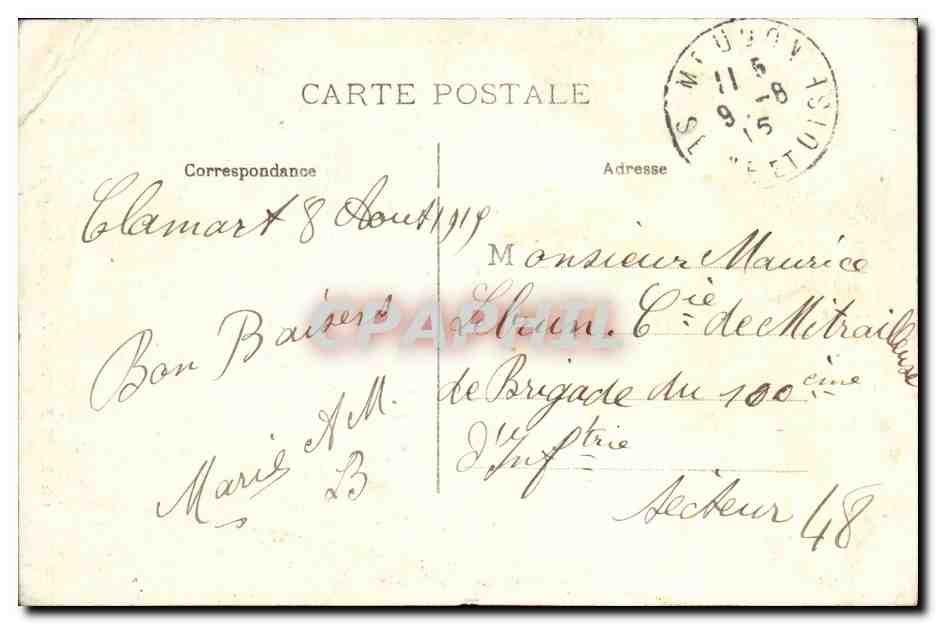 CARTE POSTALE
Correspondance
Clamart 8 Aout 1915
Bon Baisers
Marie AM.
LB
Adresse
Monsieur Maurice
Lebrun. Cie de Mitrailleuse
de Brigade du 100ème
d'Inftrie
secteur 48
MEUDON
11 5
9 - 8
15
ET OISE
CPAPHIL